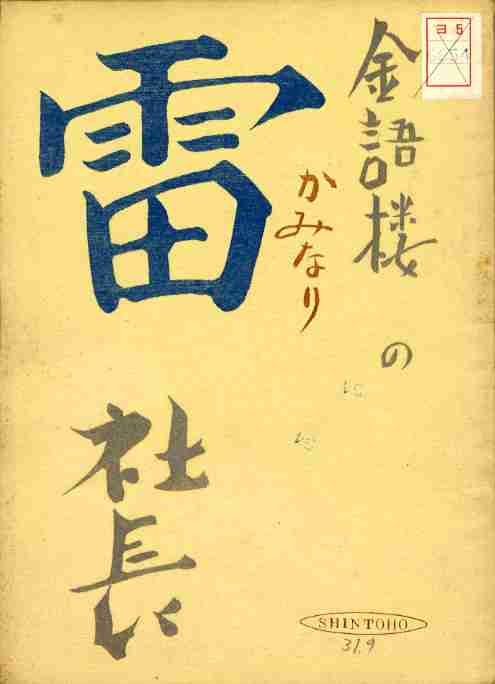 金語楼の
かみなり
雷
社長
SHINTOHO
31.9